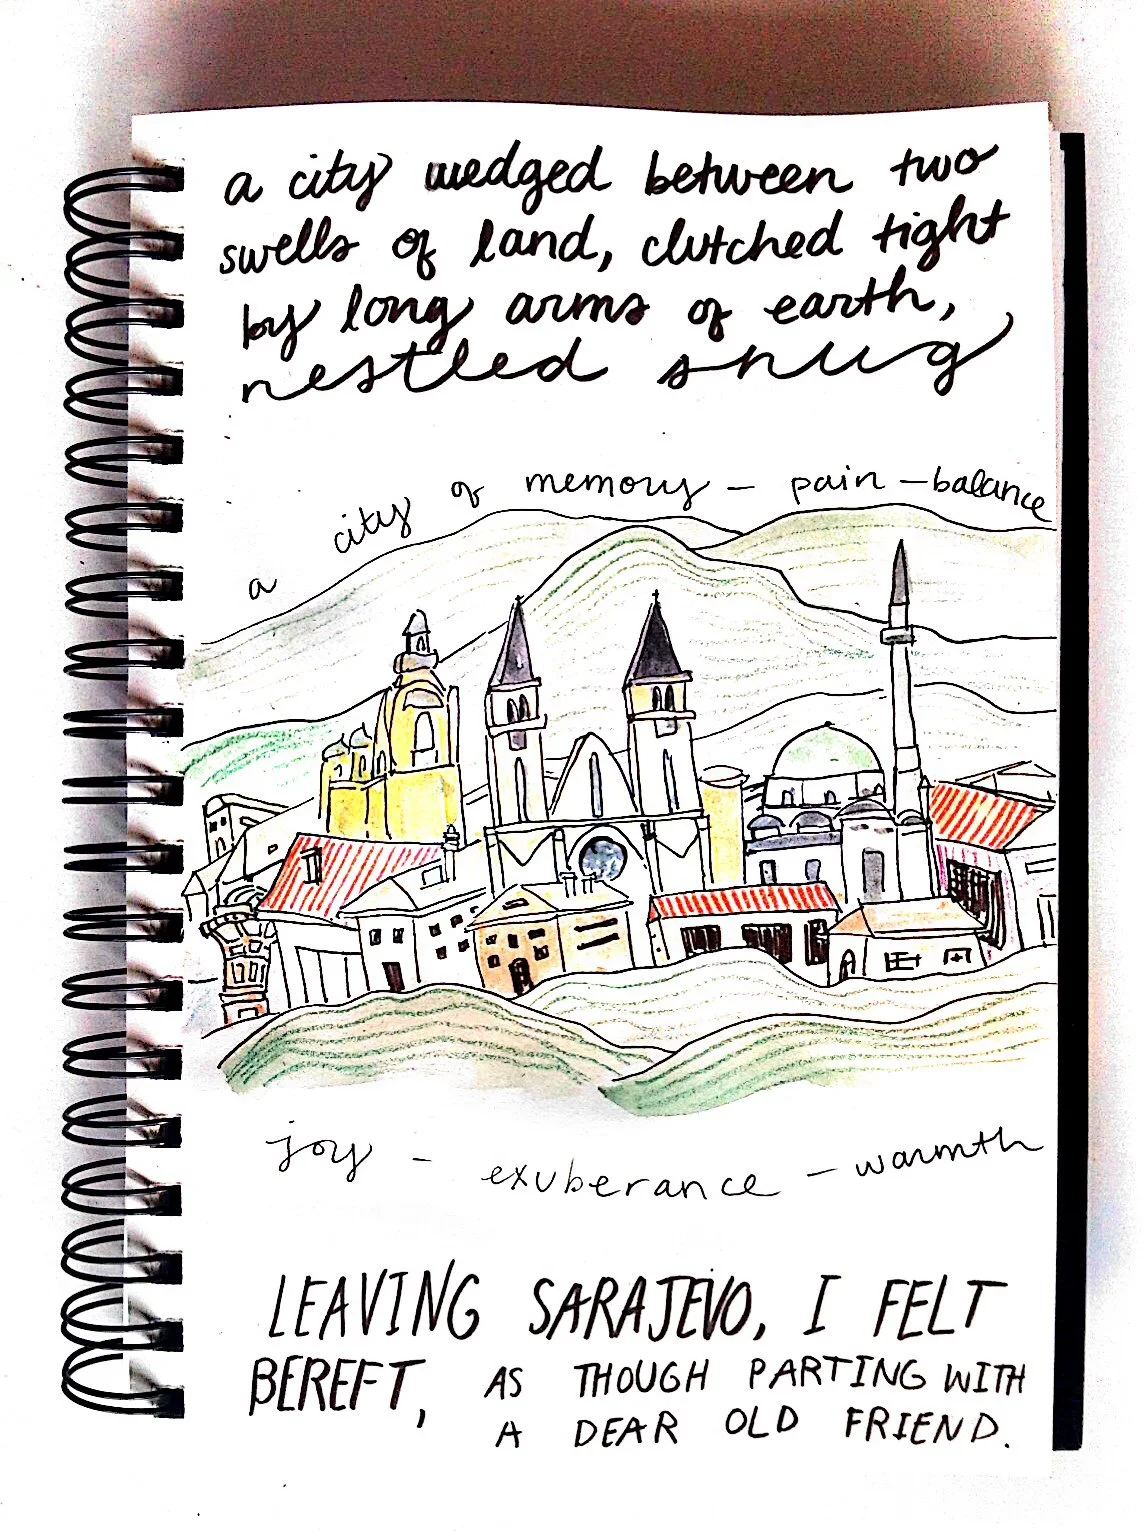 a city wedged between two
swells of land, clutched tight
by long arms of earth,
nestled snug
a city of memory – pain – balance
joy – exuberance – warmth
LEAVING SARAJEVO, I FELT
BEREFT, AS THOUGH PARTING WITH
A DEAR OLD FRIEND.